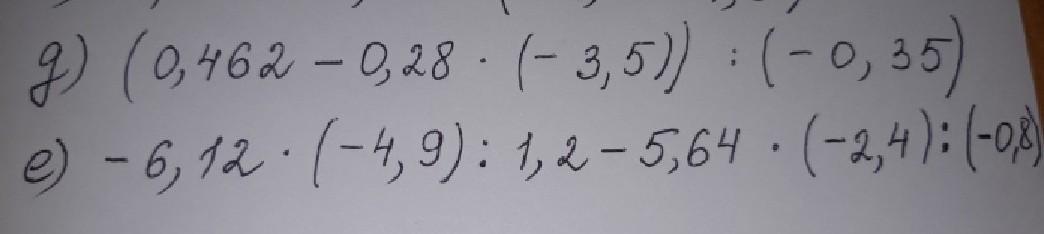 д) (0,462 - 0,28 · (- 3,5)) : (- 0,35)
е) - 6,12 · (-4,9) : 1,2 - 5,64 · (-2,4) : (-0,8)